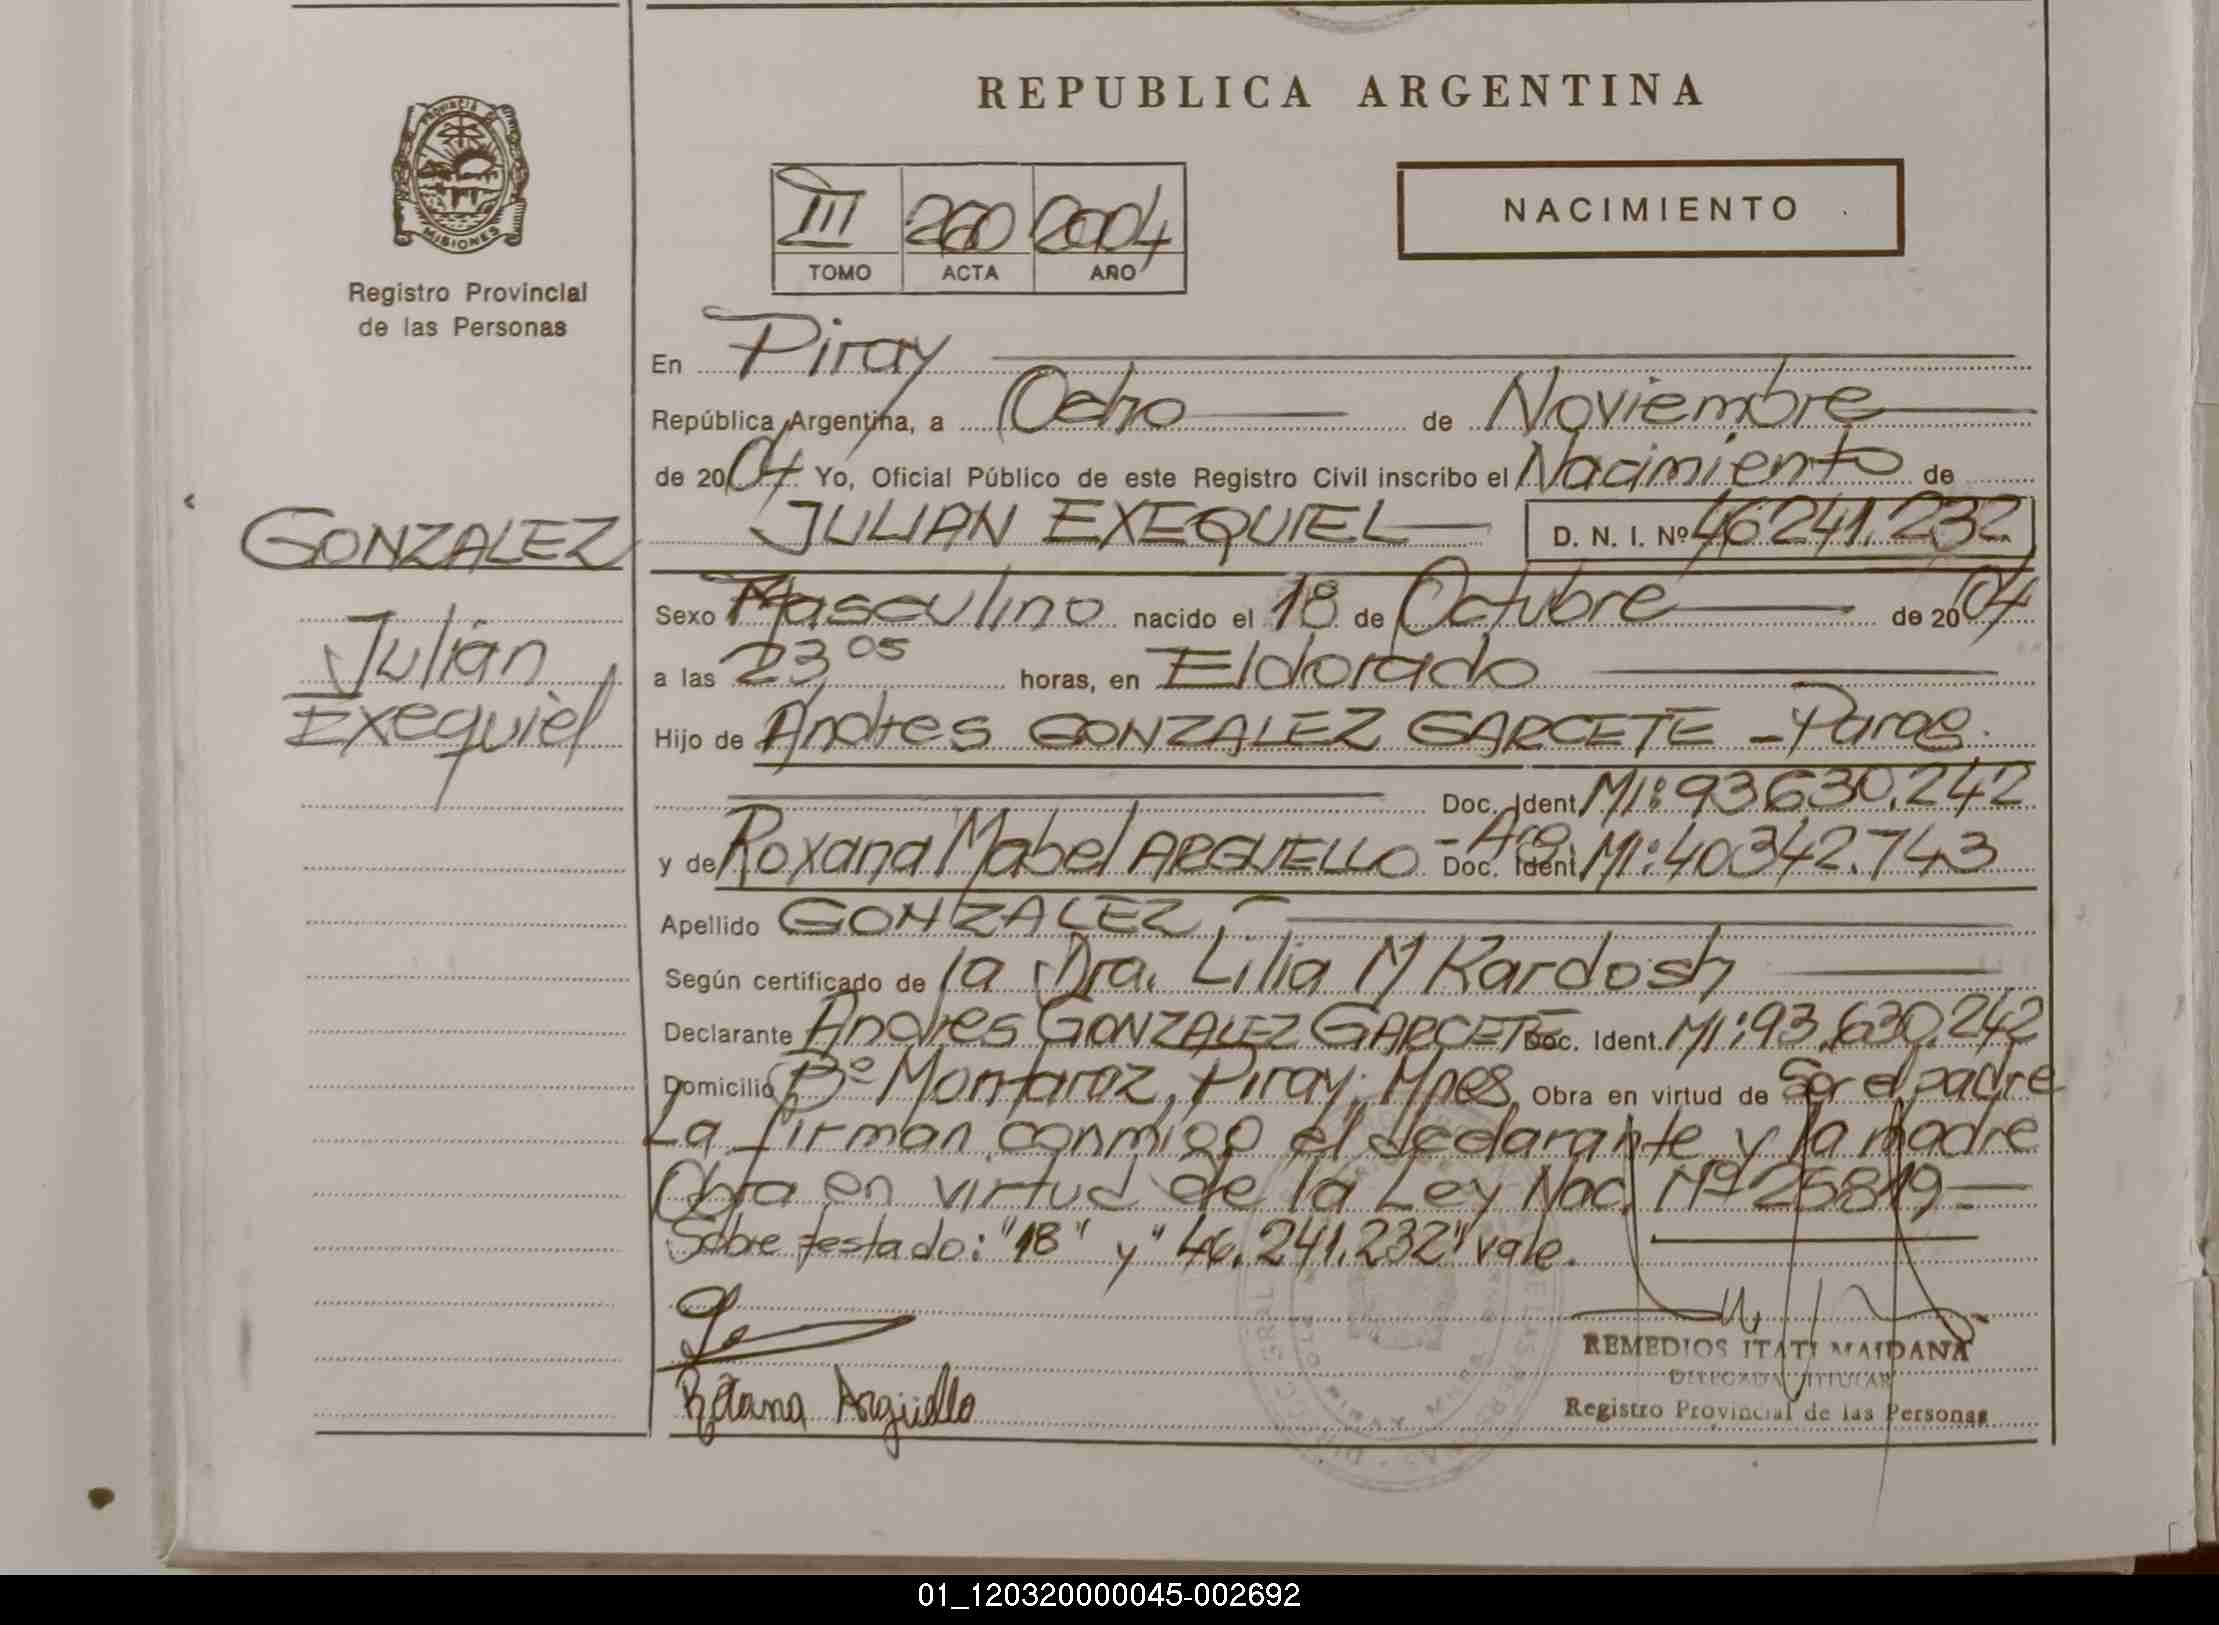 REPUBLICA ARGENTINA
PROVINCIA
MISIONES
Registro Provincial
de las Personas
III 260 2004
TOMO ACTA AÑO
NACIMIENTO
En Piray
República Argentina, a Ocho de Noviembre
de 2004 Yo, Oficial Público de este Registro Civil inscribo el Nacimiento de
GONZALEZ
Julián
Exequiel
JULIAN EXEQUIEL D. N. I. Nº 46241.232
Sexo Masculino nacido el 18 de Octubre de 2004
a las 23 05 horas, en Eldorado
Hijo de Andres GONZALEZ GARCETE - Parag.
Doc. Ident. MI: 93630.242
y de Roxana Mabel ARGUELLO - Arg. Doc. Ident. MI: 40342.743
Apellido GONZALEZ -
Según certificado de la Dra. Lilia M Kardosh
Declarante Andres GONZALEZ GARCETE Doc. Ident. MI: 93.630.242
Domicilio Bº Montaraz, Piray. Mnes Obra en virtud de Ser el padre
La firman conmigo el declarante y la madre
Obra en virtud de la Ley Nac. Nº 25819 -
Sobre testado: "18" y "46.241.232" vale.
Roxana Argüello
REMEDIOS ITATI MAIDANA
DELEGADA TITULAR
Registro Provincial de las Personas
01_120320000045-002692